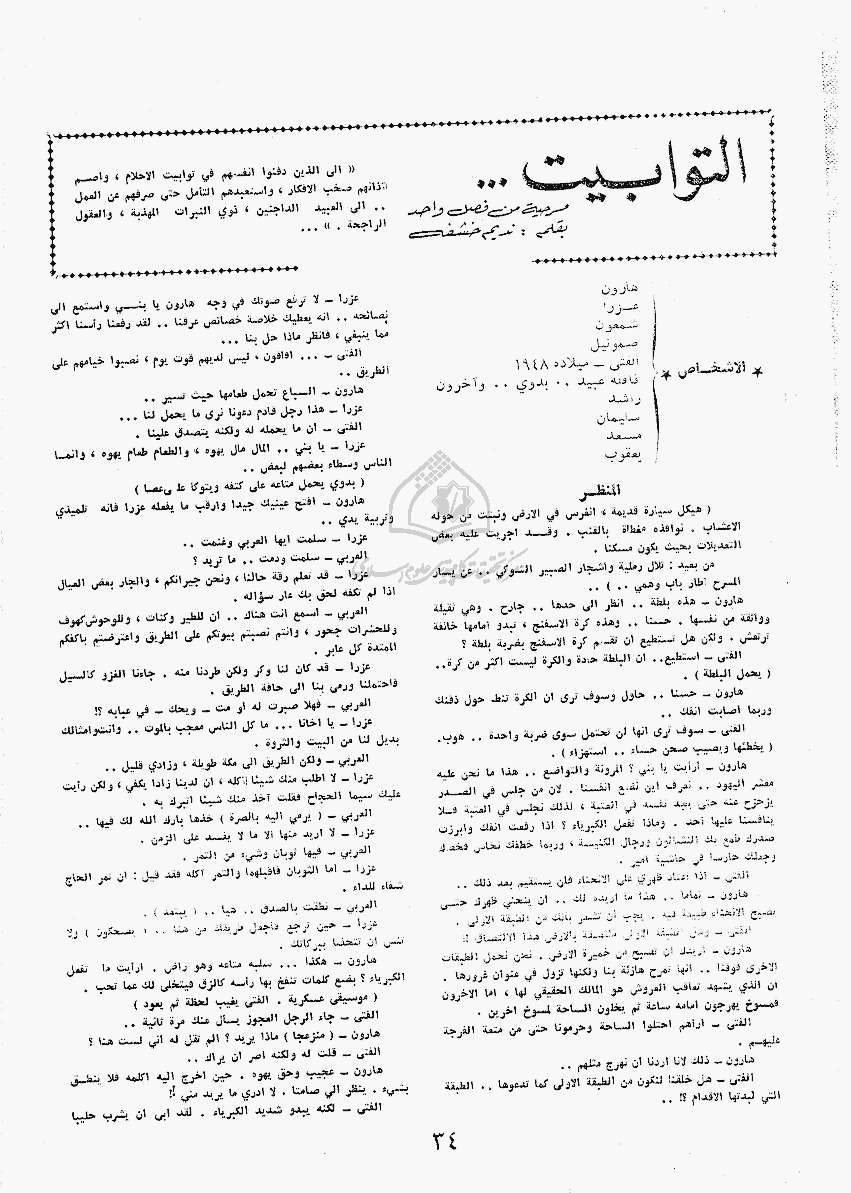 التوابيت ...
مسرحية من فصل واحد
بقلم : نديم خشفة
« الى الذين دفنوا انفسهم في توابيت الاحلام ، واصم
آذانهم صخب الافكار ، واستعبدهم التأمل حتى صرفهم عن العمل
.. الى العبيد الداجنين ، ذوي النبرات المهذبة ، والعقول
الراجحة . » ...
★ الاشخاص ★
هارون
عزرا
شمعون
صموئيل
الفتى – ميلاده ١٩٤٨
قافلة عبيد .. بدوي .. وآخرون
راشد
سليمان
مسعد
يعقوب
المنظر
( هيكل سيارة قديمة ، انغرس في الارض ونبتت من حوله
الاعشاب . نوافذه مغطاة بالقنب . وقد اجريت عليه بعض
التعديلات بحيث يكون مسكنا .
من بعيد : تلال رملية واشجار الصبير الشوكي .. عن يسار
المسرح اطار باب وهمي .. ) ..
هارون – هذه بلطة .. انظر الى حدها .. جارح . وهي ثقيلة
وواثقة من نفسها . حسنا .. وهذه كرة الاسفنج ، تبدو أمامها خائفة
ترتعش . ولكن هل تستطيع ان تقسم كرة الاسفنج بضربة بلطة ؟
الفتى – استطيع .. ان البلطة حادة والكرة ليست اكثر من كرة..
( يحمل البلطة ) .
هارون – حسنا .. حاول وسوف ترى ان الكرة تنط حول ذقنك
وربما أصابت انفك ..
الفتى – سوف ترى انها لن تحتمل سوى ضربة واحدة .. هوب.
( يخطئها ويصيب صحن حساء .. استهزاء )
هارون – أرأيت يا بني ؟ المرونة والتواضع .. هذا ما نحن عليه
معشر اليهود .. نعرف اين نضع انفسنا . لان من جلس في الصدر
يزحزح عنه حتى يجد نفسه في العتبة ، لذلك نجلس في العتبة فلا
ينافسنا عليها أحد . وماذا تفعل الكبرياء ؟ اذا رفعت انفك وابرزت
صدرك طمع بك النشالون ورجال الكنيسة ، وربما خطفك نخاس فخصاك
وجعلك حارسا في حاشية امير .
الفتى – اذا اعتاد ظهري على الانحناء فلن يستقيم بعد ذلك ..
هارون – تماما .. هذا ما اريده لك .. ان ينحني ظهرك حتى
يصبح الانحناء طبيعة فيه . يجب ان تشعر بانك من الطبقة الاولى .
الفتى – وهل الطبقة الاولى ملتصقة بالارض هذا الالتصاق !؟
هارون – اريدك ان تصبح من خميرة الارض . نحن نحمل الطبقات
الاخرى فوقنا .. انها تمرح هازئة بنا ولكنها تزول في عنوان غرورها .
ان الذي يشهد تعاقب العروش هو المالك الحقيقي لها ، اما الآخرون
فمسوخ يهرجون امامه ساعة ثم يخلون الساحة لمسوخ آخرين .
الفتى – اراهم احتلوا الساحة وحرمونا حتى من متعة الفرجة
عليهم .
هارون – ذلك لاننا اردنا ان نهرج مثلهم ..
الفتى – هل خلقنا لنكون من الطبقة الاولى كما تدعوها .. الطبقة
التي لبدتها الاقدام ؟! ..
عزرا – لا ترفع صوتك في وجه هارون يا بني واستمع الى
نصائحه .. انه يعطيك خلاصة خصائص عرقنا .. لقد رفعنا رأسنا اكثر
مما ينبغي ، فانظر ماذا حل بنا ...
الفتى – ... افاقون ، ليس لديهم قوت يوم ، نصبوا خيامهم على
الطريق ..
هارون – السباع تحمل طعامها حيث تسير ..
عزرا – هذا رجل قادم دعونا نرى ما يحمل لنا ...
الفتى – ان ما يحمله له ولكنه يتصدق علينا .
عزرا – يا بني .. المال مال يهوه ، والطعام طعام يهوه ، وانما
الناس وسطاء بعضهم لبعض ..
( بدوي يحمل متاعه على كتفه ويتوكأ على عصا )
هارون – افتح عينيك جيدا وارقب ما يفعله عزرا فانه تلميذي
وتربية يدي ..
عزرا – سلمت ايها العربي وغنمت ..
العربي – سلمت ودمت .. ما تريد ؟
عزرا – قد تعلم رقة حالنا ، ونحن جيرانكم ، والجار بعض العيال
اذا لم تكفه لحق بك عار سؤاله .
العربي – اسمع انت هناك .. ان للطير وكنات ، وللوحوش كهوف
وللحشرات جحور ، وانتم نصبتم بيوتكم على الطريق واعترضتم باكفكم
الممتدة كل عابر .
عزرا – قد كان لنا وكر ولكن طردنا منه . جاءنا الغزو كالسيل
فاحتملنا ورمى بنا الى حافة الطريق .
العربي – فهلا صبرت له او مت – ويحك – في عبابه ؟!
عزرا – يا اخانا ... ما كل الناس معجب بالموت .. وانت وامثالك
بديل لنا من البيت والثروة .
العربي – ولكن الطريق الى مكة طويلة ، وزادي قليل ..
عزرا – لا اطلب منك شيئا آكله ، ان لدينا زادا يكفي ، ولكن رأيت
عليك سيما الحجاج فقلت آخذ منك شيئا اتبرك به .
العربي – ( يرمي اليه بالصرة ) خذها بارك الله لك فيها ..
عزرا – لا اريد منها الا ما لا يفسد على الزمن .
العربي – فيها ثوبان وشيء من التمر .
عزرا – اما الثوبان فاقبلهما والتمر آكله فقد قيل : ان تمر الحاج
شفاء للداء .
العربي – نطقت بالصدق .. هيا .. ( يبتعد ) .
عزرا – حين ترجع فاجعل طريقك من هنا .. ( يضحكون ) ولا
تنس ان تتحفنا ببركاتك .
هارون – هكذا ... سلبه متاعه وهو راض . ارأيت ما تفعل
الكبرياء ؟ بضع كلمات تنفخ بها رأسه كالزق فيتخلى لك عما تحب .
( موسيقى عسكرية . الفتى يغيب لحظة ثم يعود )
الفتى – جاء الرجل العجوز يسأل عنك مرة ثانية ..
هارون – ( منزعجا ) ماذا يريد ؟ الم تقل له اني لست هنا ؟
الفتى – قلت له ولكنه اصر ان يراك ..
هارون – عجيب وحق يهوه . حين اخرج اليه اكلمه فلا ينطق
بشيء . ينظر الي صامتا . لا ادري ما يريد مني !!
الفتى – لكنه يبدو شديد الكبرياء . لقد ابى ان يشرب حليبا
٣٤